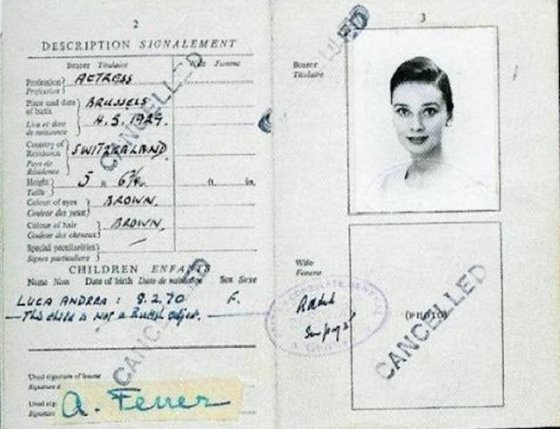 2
DESCRIPTION SIGNALEMENT
Bearer Titulaire
Wife Femme
Profession
Profession
ACTRESS
Place and date of birth
Lieu et date de naissance
BRUSSELS
4.5.1929.
Country of Residence
Pays de Résidence
SWITZERLAND
Height
Taille
5 6¾
ft. in.
Colour of eyes
Couleur des yeux
BROWN.
Colour of hair
Couleur des cheveux
BROWN.
Special peculiarities
Signes particuliers
CHILDREN ENFANTS
Name Nom Date of birth Date de naissance Sex Sexe
LUCA ANDREA : 8.2.70
— This child is not a British subject. —
Usual signature of bearer
Signature
Usual
Signature
CANCELLED
CANCELLED
3
Bearer
Titulaire
Wife
Femme
(PHOTO)
CANCELLED